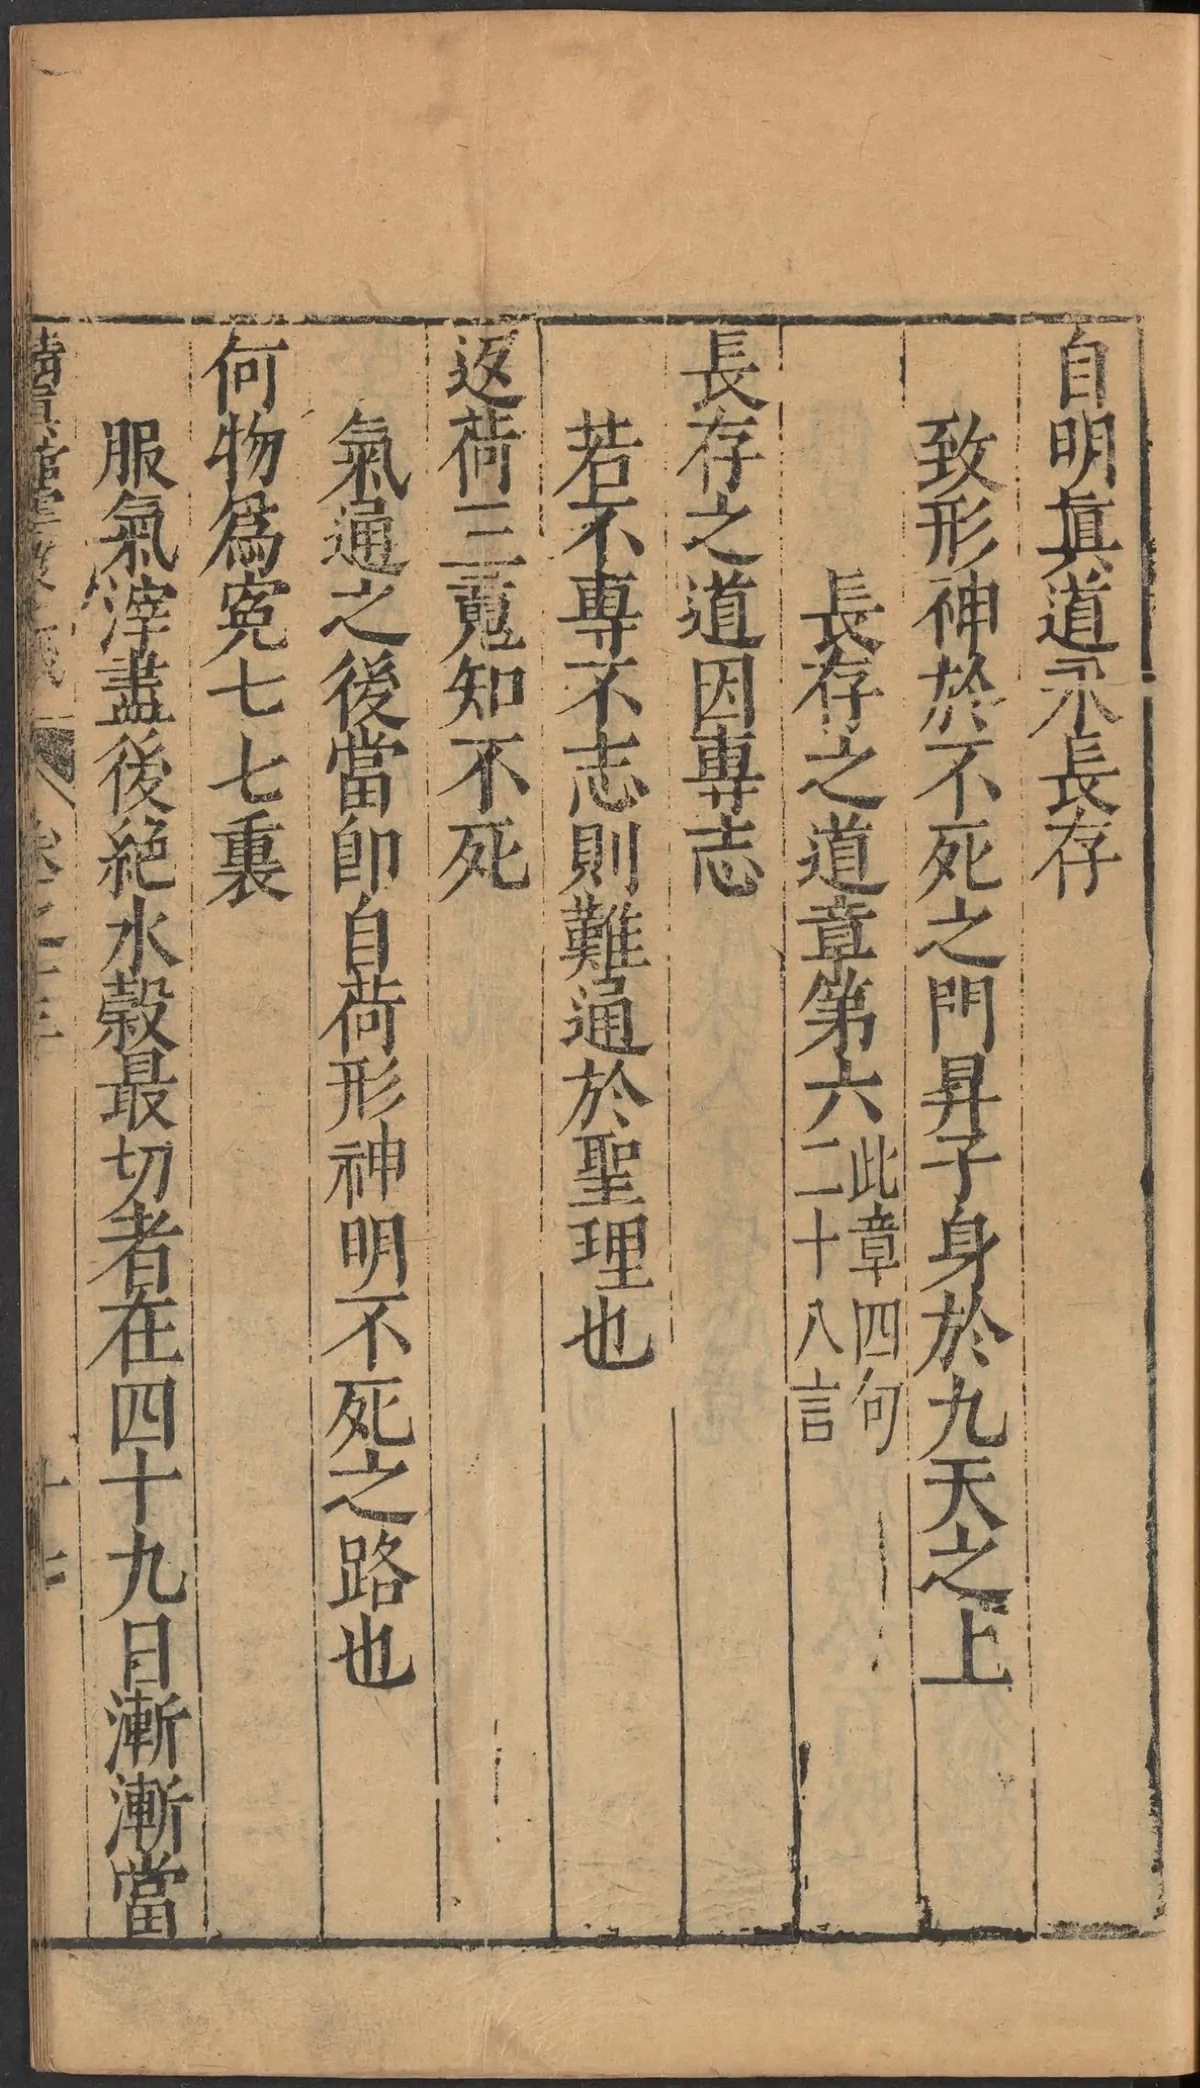 自明眞道永長存
致形神於不死之門昇子身於九天之上
長存之道章第六此章四句二十八言
長存之道因專志
若不專不志則難通於聖理也
返荷三䰟知不死
氣通之後當卽自荷形神明不死之路也
何物爲寃七七裏
服氣滓盡後絕水穀最切者在四十九日漸漸當
卷之十三
十七